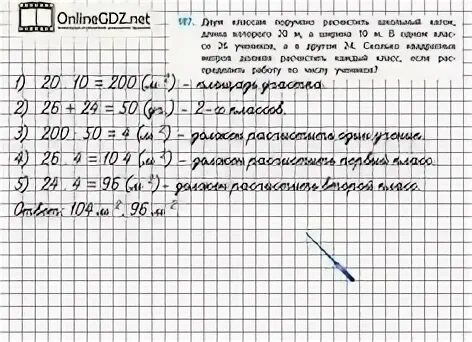 OnlineGDZ.net
187. Двум классам поручено расчистить школьный каток,
длина которого 20 м, а ширина 10 м. В одном клас-
се 26 учеников, а в другом 24. Сколько квадратных
метров должен расчистить каждый класс, если рас-
пределить работу по числу учеников?
1) 20 · 10 = 200 (м²) - площадь участка.
2) 26 + 24 = 50 (уч.) - 2-х классов.
3) 200 : 50 = 4 (м²) - должен расчистить один ученик.
4) 26 · 4 = 104 (м²) - должен расчистить первый класс.
5) 24 · 4 = 96 (м²) - должен расчистить второй класс.
Ответ: 104 м², 96 м²